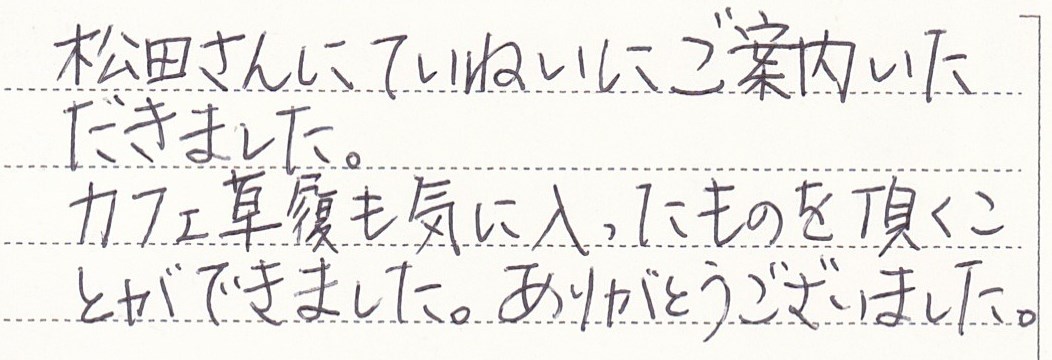 松田さんにていねいにご案内いた
だきました。
カフェ草履も気に入ったものを頂くこ
とができました。ありがとうございました。